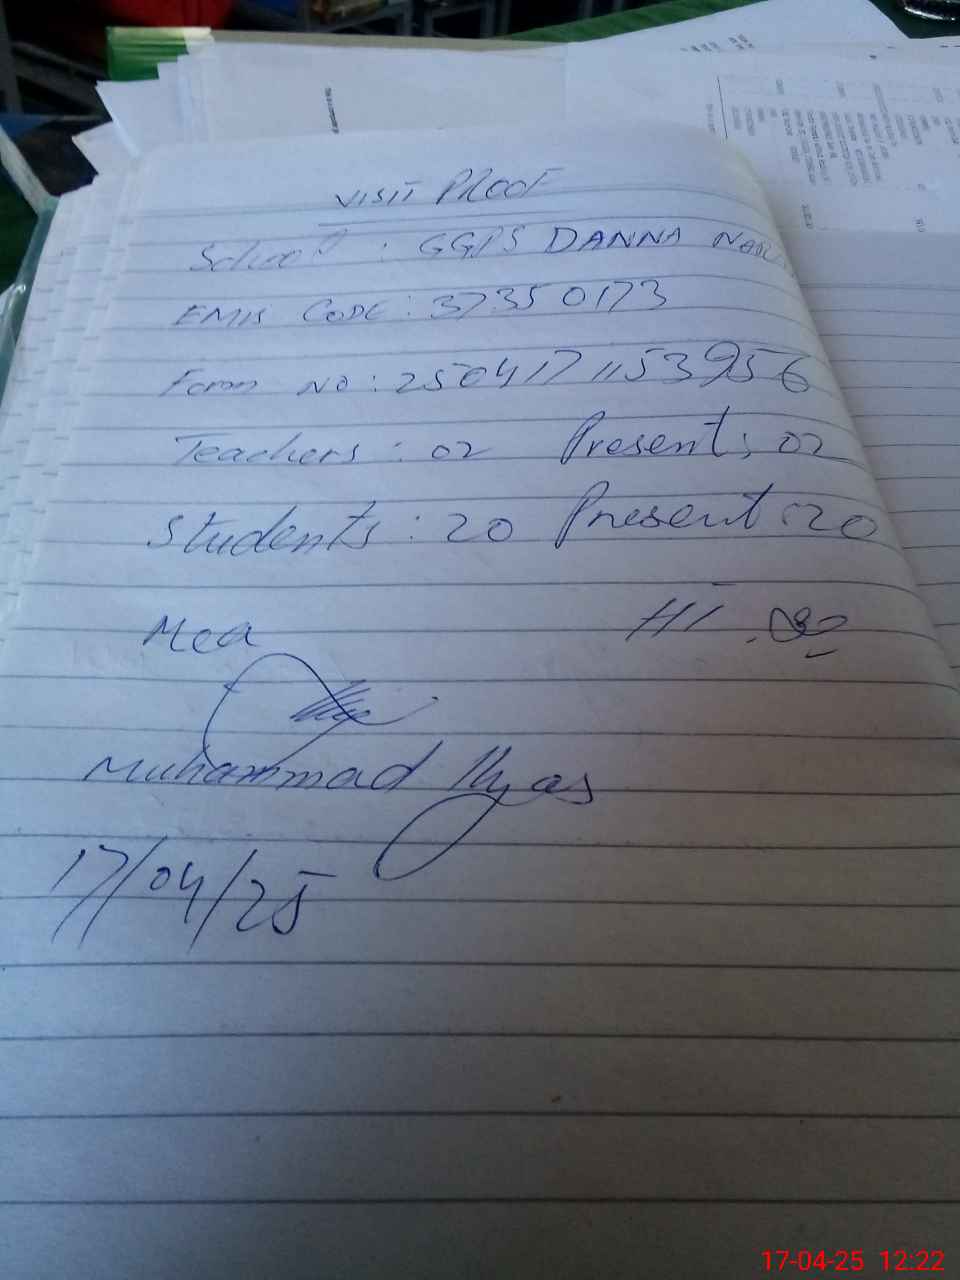 VISIT PROOF
School : GGPS DANNA
EMIS CODE : 37350173
Form No : 250417 1153956
Teachers : 02 Present : 02
Students : 20 Present : 20
Mea HT
Muhammad Ilyas
17/04/25
17-04-25 12:22